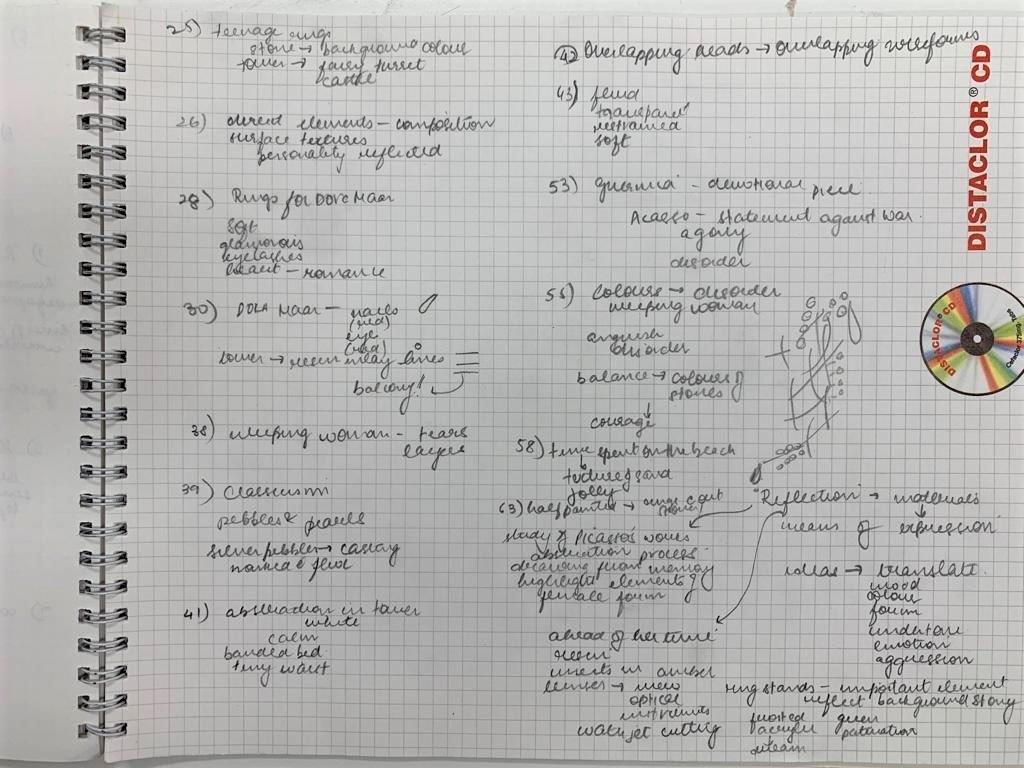 25) teenage rings
stone → background colour
tower → fairy turret
castle
26) direct elements - composition
surface textures
personality reflected
28) Rings for Dora Maar
soft
glamorous
eyelashes
heart - romance
30) DORA Maar - nails
(red)
eye
(red)
tower → resin inlay lines
balcony!
38) weeping woman - tears
layers
39) Classicism
pebbles & pearls
silver pebbles → casting
normal & fluid
41) abstraction in tower
white
calm
banded bed
tiny waist
42 Overlapping heads → overlapping wireforms
43) fluid
transparent
restrained
soft
53) guernica - devotional piece
Picasso - statement against war.
agony
disorder
55) colours → disorder
weeping woman
anguish
disorder
balance → colours of
stones
courage
58) time spent on the beach
texture of sand
jolly
63) half painted → rings cont
study of Picasso's works
abstraction process
drawing from memory
highlight elements of
female form
"Reflection" → materials
means of expression
ideas → translate.
mood
colour
form
undertone
emotion
aggression
ahead of her time
resin
inserts in amber
lenses → new
optical
instruments
water jet cutting
ring stands - important element
reflect background story
frosted green
acrylic patination
DISTACLOR® CD
DISTACLOR® CD